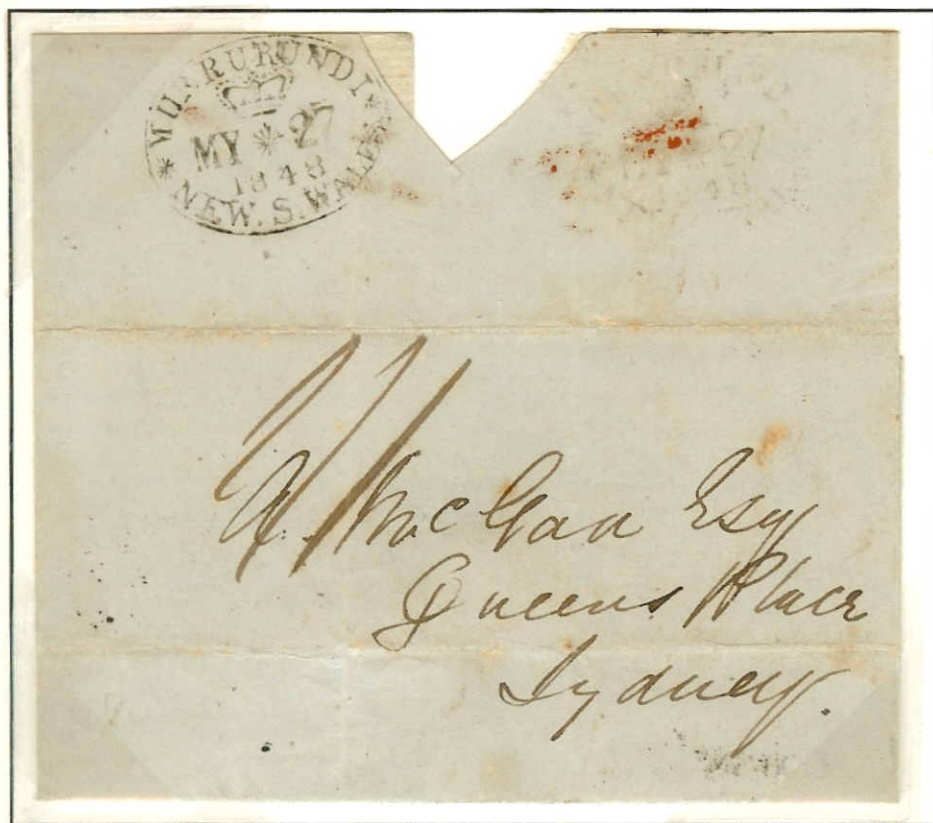 * MURRURUNDI *
MY * 27
1848
NEW. S. WALES
27
1848
Mc Gaa Esq
Queens Place
Sydney.